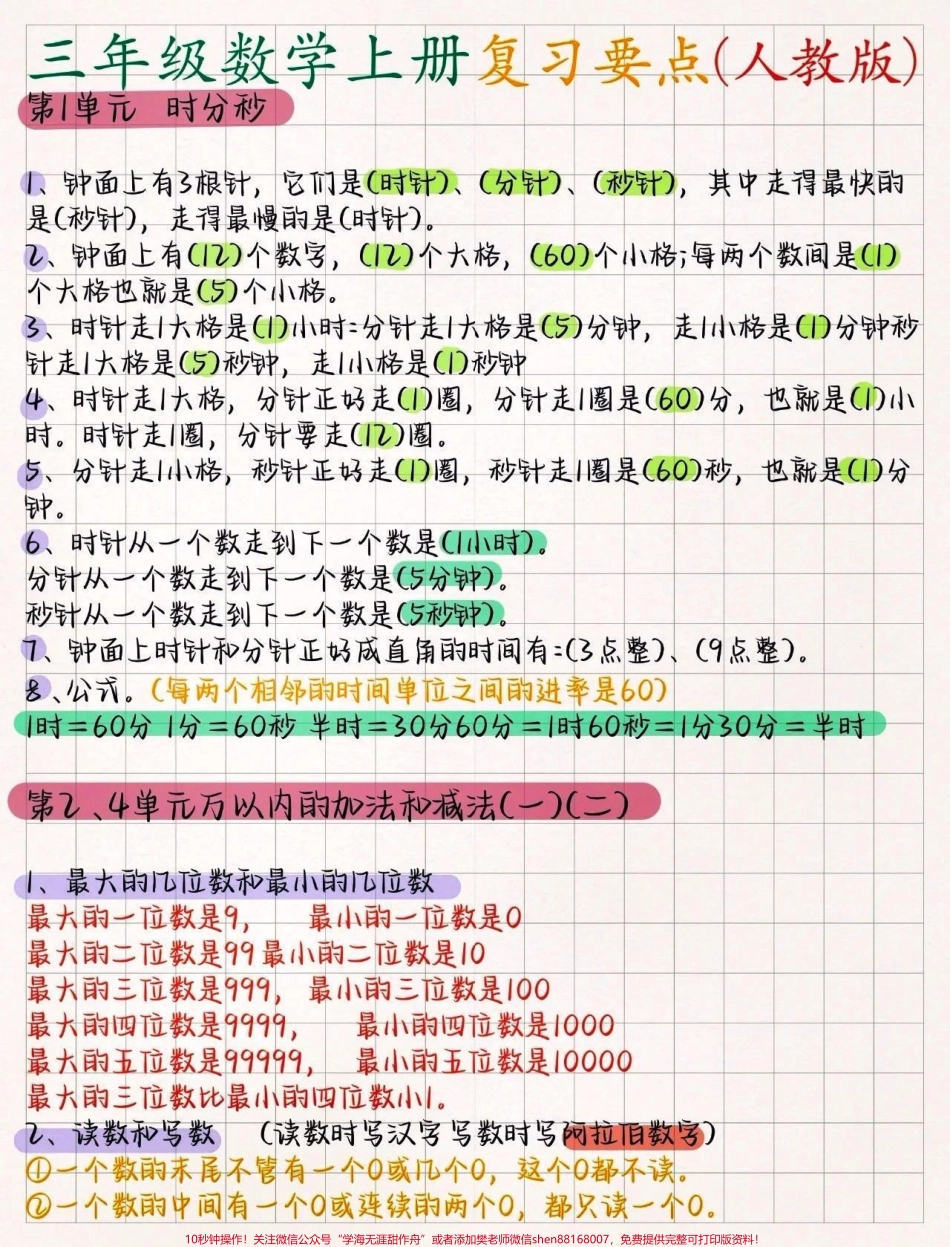 三年级数学上册复习要点(人教版)
第1单元 时分秒
1、钟面上有3根针，它们是(时针)、(分针)、(秒针)，其中走得最快的
是(秒针)，走得最慢的是(时针)。
2、钟面上有(12)个数字，(12)个大格，(60)个小格;每两个数间是(1)
个大格也就是(5)个小格。
3、时针走1大格是(1)小时:分针走1大格是(5)分钟，走1小格是(1)分钟秒
针走1大格是(5)秒钟，走1小格是(1)秒钟
4、时针走1大格，分针正好走(1)圈，分针走1圈是(60)分，也就是(1)小
时。时针走1圈，分针要走(12)圈。
5、分针走1小格，秒针正好走(1)圈，秒针走1圈是(60)秒，也就是(1)分
钟。
6、时针从一个数走到下一个数是(1小时)。
分针从一个数走到下一个数是(5分钟)。
秒针从一个数走到下一个数是(5秒钟)。
7、钟面上时针和分针正好成直角的时间有:(3点整)、(9点整)。
8、公式。(每两个相邻的时间单位之间的进率是60)
1时=60分 1分=60秒 半时=30分60分=1时60秒=1分30分=半时
第2、4单元万以内的加法和减法(一)(二)
1、最大的几位数和最小的几位数
最大的一位数是9， 最小的一位数是0
最大的二位数是99最小的二位数是10
最大的三位数是999， 最小的三位数是100
最大的四位数是9999， 最小的四位数是1000
最大的五位数是99999， 最小的五位数是10000
最大的三位数比最小的四位数小1。
2、读数和写数 (读数时写汉字 写数时写阿拉伯数字)
①一个数的末尾不管有一个0或几个0，这个0都不读。
②一个数的中间有一个0或连续的两个0，都只读一个0。
10秒钟操作！关注微信公众号“学海无涯甜作舟”或者添加樊老师微信shen88168007，免费提供完整可打印版资料！